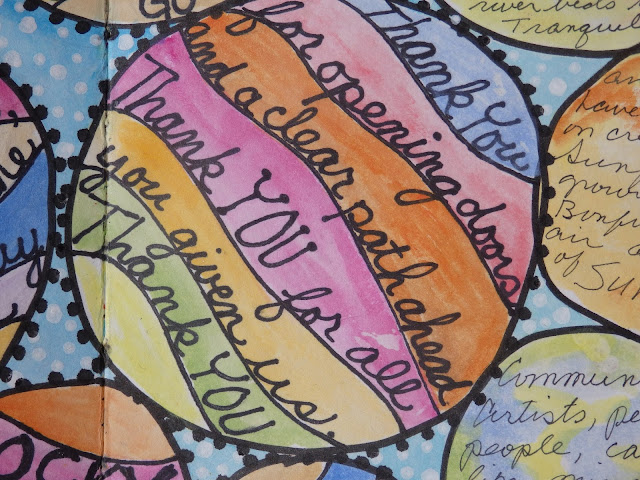 Go
Thank You
for opening doors
and a clear path ahead
Thank YOU for all
you given us.
Thank YOU
river beds
Tranquil
an
have
on cre
Sun
grow
Bonf
air a
of Sun
Commun
Artists, pe
people, ca